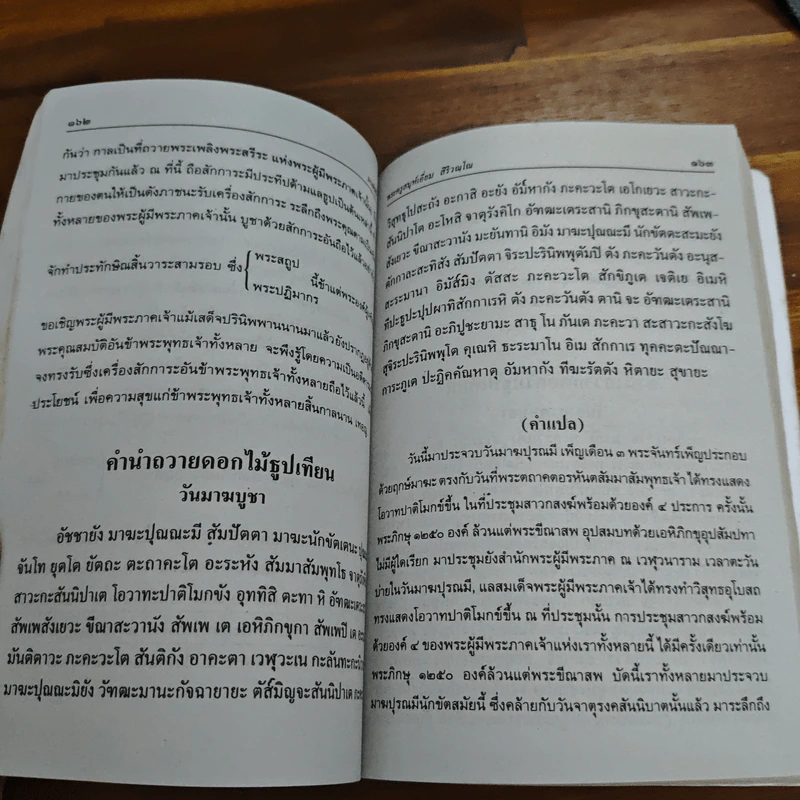 ๑๖๒
กันว่า กาลเป็นที่ถวายพระเพลิงพระสรีระ แห่งพระผู้มีพระภาคเจ้านั้น
มาประชุมกันแล้ว ณ ที่นี้ ถือสักการะมีประทีปด้ามแลธูปเป็นต้น
กายของตนให้เป็นดังภาชนะรับเครื่องสักการะ ระลึกถึงพระคุณตาม
ทั้งหลายของพระผู้มีพระภาคเจ้านั้น บูชาด้วยสักการะอันถือไว้แล้ว
จักทำประทักษิณสิ้นวาระสามรอบ ซึ่ง { พระสถูป
พระปฏิมากร } นี้ข้าแต่พระองค์
ขอเชิญพระผู้มีพระภาคเจ้าแม้เสด็จปรินิพพานนานมาแล้วยังปรากฏ
พระคุณสมบัติอันข้าพระพุทธเจ้าทั้งหลาย จะพึงรู้โดยความเป็น
จงทรงรับซึ่งเครื่องสักการะอันข้าพระพุทธเจ้าทั้งหลายถือไว้แล้วนี้
ประโยชน์ เพื่อความสุขแก่ข้าพระพุทธเจ้าทั้งหลายสิ้นกาลนาน เทอญ
คำนำถวายดอกไม้ธูปเทียน
วันมาฆบูชา
อัชชายัง มาฆะปุณณะมี สัมปัตตา มาฆะนักขัตเตนะ
จันโท ยุตโต ยัตถะ ตะถาคะโต อะระหัง สัมมาสัมพุทโธ
สาวะกะสันนิปาเต โอวาทะปาติโมกขัง อุททิสิ ตะทา หิ อัฑฒะเตระ
สัพเพสังเยวะ ขีณาสะวานัง สัพเพ เต เอหิภิกขุกา สัพเพปิ เต
มันติตาวะ ภะคะวะโต สันติกัง อาคะตา เวฬุวะเน กะลันทะกะ
มาฆะปุณณะมิยัง วัฑฒะมานะกัจฉายายะ ตัส๎มิญจะสันนิปาเต
๑๖๓
พระครูสมุห์เอี่ยม สิริวณฺโณ
วิสุทธุโปสะถัง อะกาสิ อะยัง อัม๎หากัง ภะคะวะโต เอโกเยวะ สาวะกะ-
สันนิปาโต อะโหสิ จาตุรังคิโก อัฑฒะเตระสานิ ภิกขุสะตานิ สัพเพ-
สังเยวะ ขีณาสะวานัง มะยันทานิ อิมัง มาฆะปุณณะมี นักขัตตะสะมะยัง
ตักกาละสะทิสัง สัมปัตตา จิระปะรินิพพุตัมปิ ตัง ภะคะวันตัง อะนุส-
สะระมานา อิมัส๎มิง ตัสสะ ภะคะวะโต สักขิภูเต เจติเย อิเมหิ
ทีปะธูปะปุปผาทิสักกาเรหิ ตัง ภะคะวันตัง ตานิ จะ อัฑฒะเตระสานิ
ภิกขุสะตานิ อะภิปูชะยามะ สาธุ โน ภันเต ภะคะวา สะสาวะกะสังโฆ
สุจิระปะรินิพพุโต คุเณหิ ธะระมาโน อิเม สักกาเร ทุคคะตะปัณณา-
การะภูเต ปะฏิคคัณหาตุ อัมหากัง ทีฆะรัตตัง หิตายะ สุขายะ
(คำแปล)
วันนี้มาประจวบวันมาฆปุรณมี เพ็ญเดือน ๓ พระจันทร์เพ็ญประกอบ
ด้วยฤกษ์มาฆะ ตรงกับวันที่พระตถาคตอรหันตสัมมาสัมพุทธเจ้า ได้ทรงแสดง
โอวาทปาติโมกข์ขึ้น ในที่ประชุมสาวกสงฆ์พร้อมด้วยองค์ ๔ ประการ ครั้งนั้น
พระภิกษุ ๑๒๕๐ องค์ ล้วนแต่พระขีณาสพ อุปสมบทด้วยเอหิภิกขุอุปสัมปทา
ไม่มีผู้ใดเรียก มาประชุมยังสำนักพระผู้มีพระภาค ณ เวฬุวนาราม เวลาตะวัน
บ่ายในวันมาฆปุรณมี, แลสมเด็จพระผู้มีพระภาคเจ้าได้ทรงทำวิสุทธอุโบสถ
ทรงแสดงโอวาทปาติโมกข์ขึ้น ณ ที่ประชุมนั้น การประชุมสาวกสงฆ์พร้อม
ด้วยองค์ ๔ ของพระผู้มีพระภาคเจ้าแห่งเราทั้งหลายนี้ ได้มีครั้งเดียวเท่านั้น
พระภิกษุ ๑๒๕๐ องค์ล้วนแต่พระขีณาสพ บัดนี้เราทั้งหลายมาประจวบ
มาฆปุรณมีนักขัตสมัยนี้ ซึ่งคล้ายกับวันจาตุรงคสันนิบาตนั้นแล้ว มาระลึกถึง